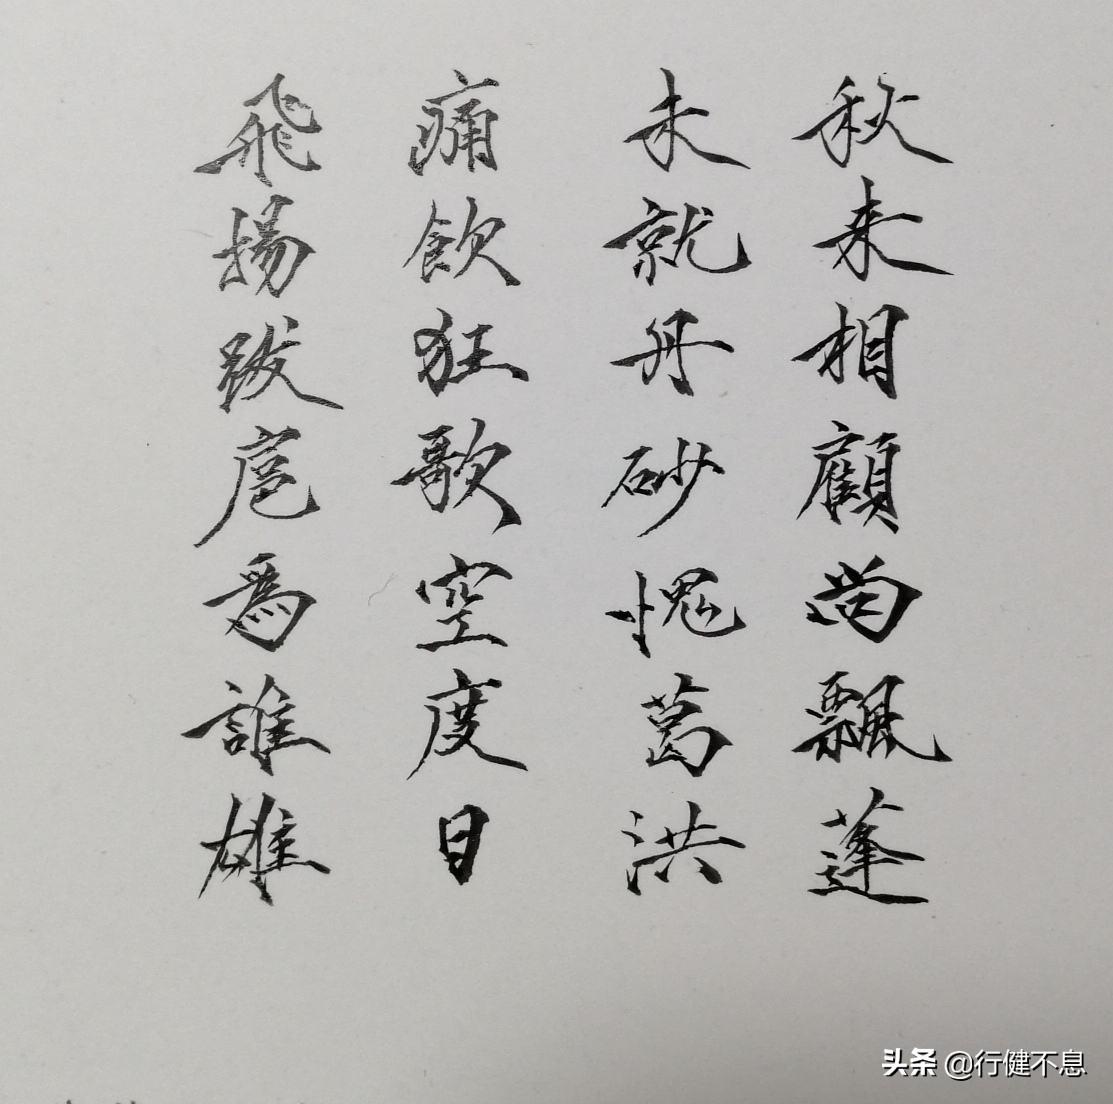 秋来相顧尚飄蓬
未就丹砂愧葛洪
痛飲狂歌空度日
飛揚跋扈為誰雄
头条 @行健不息